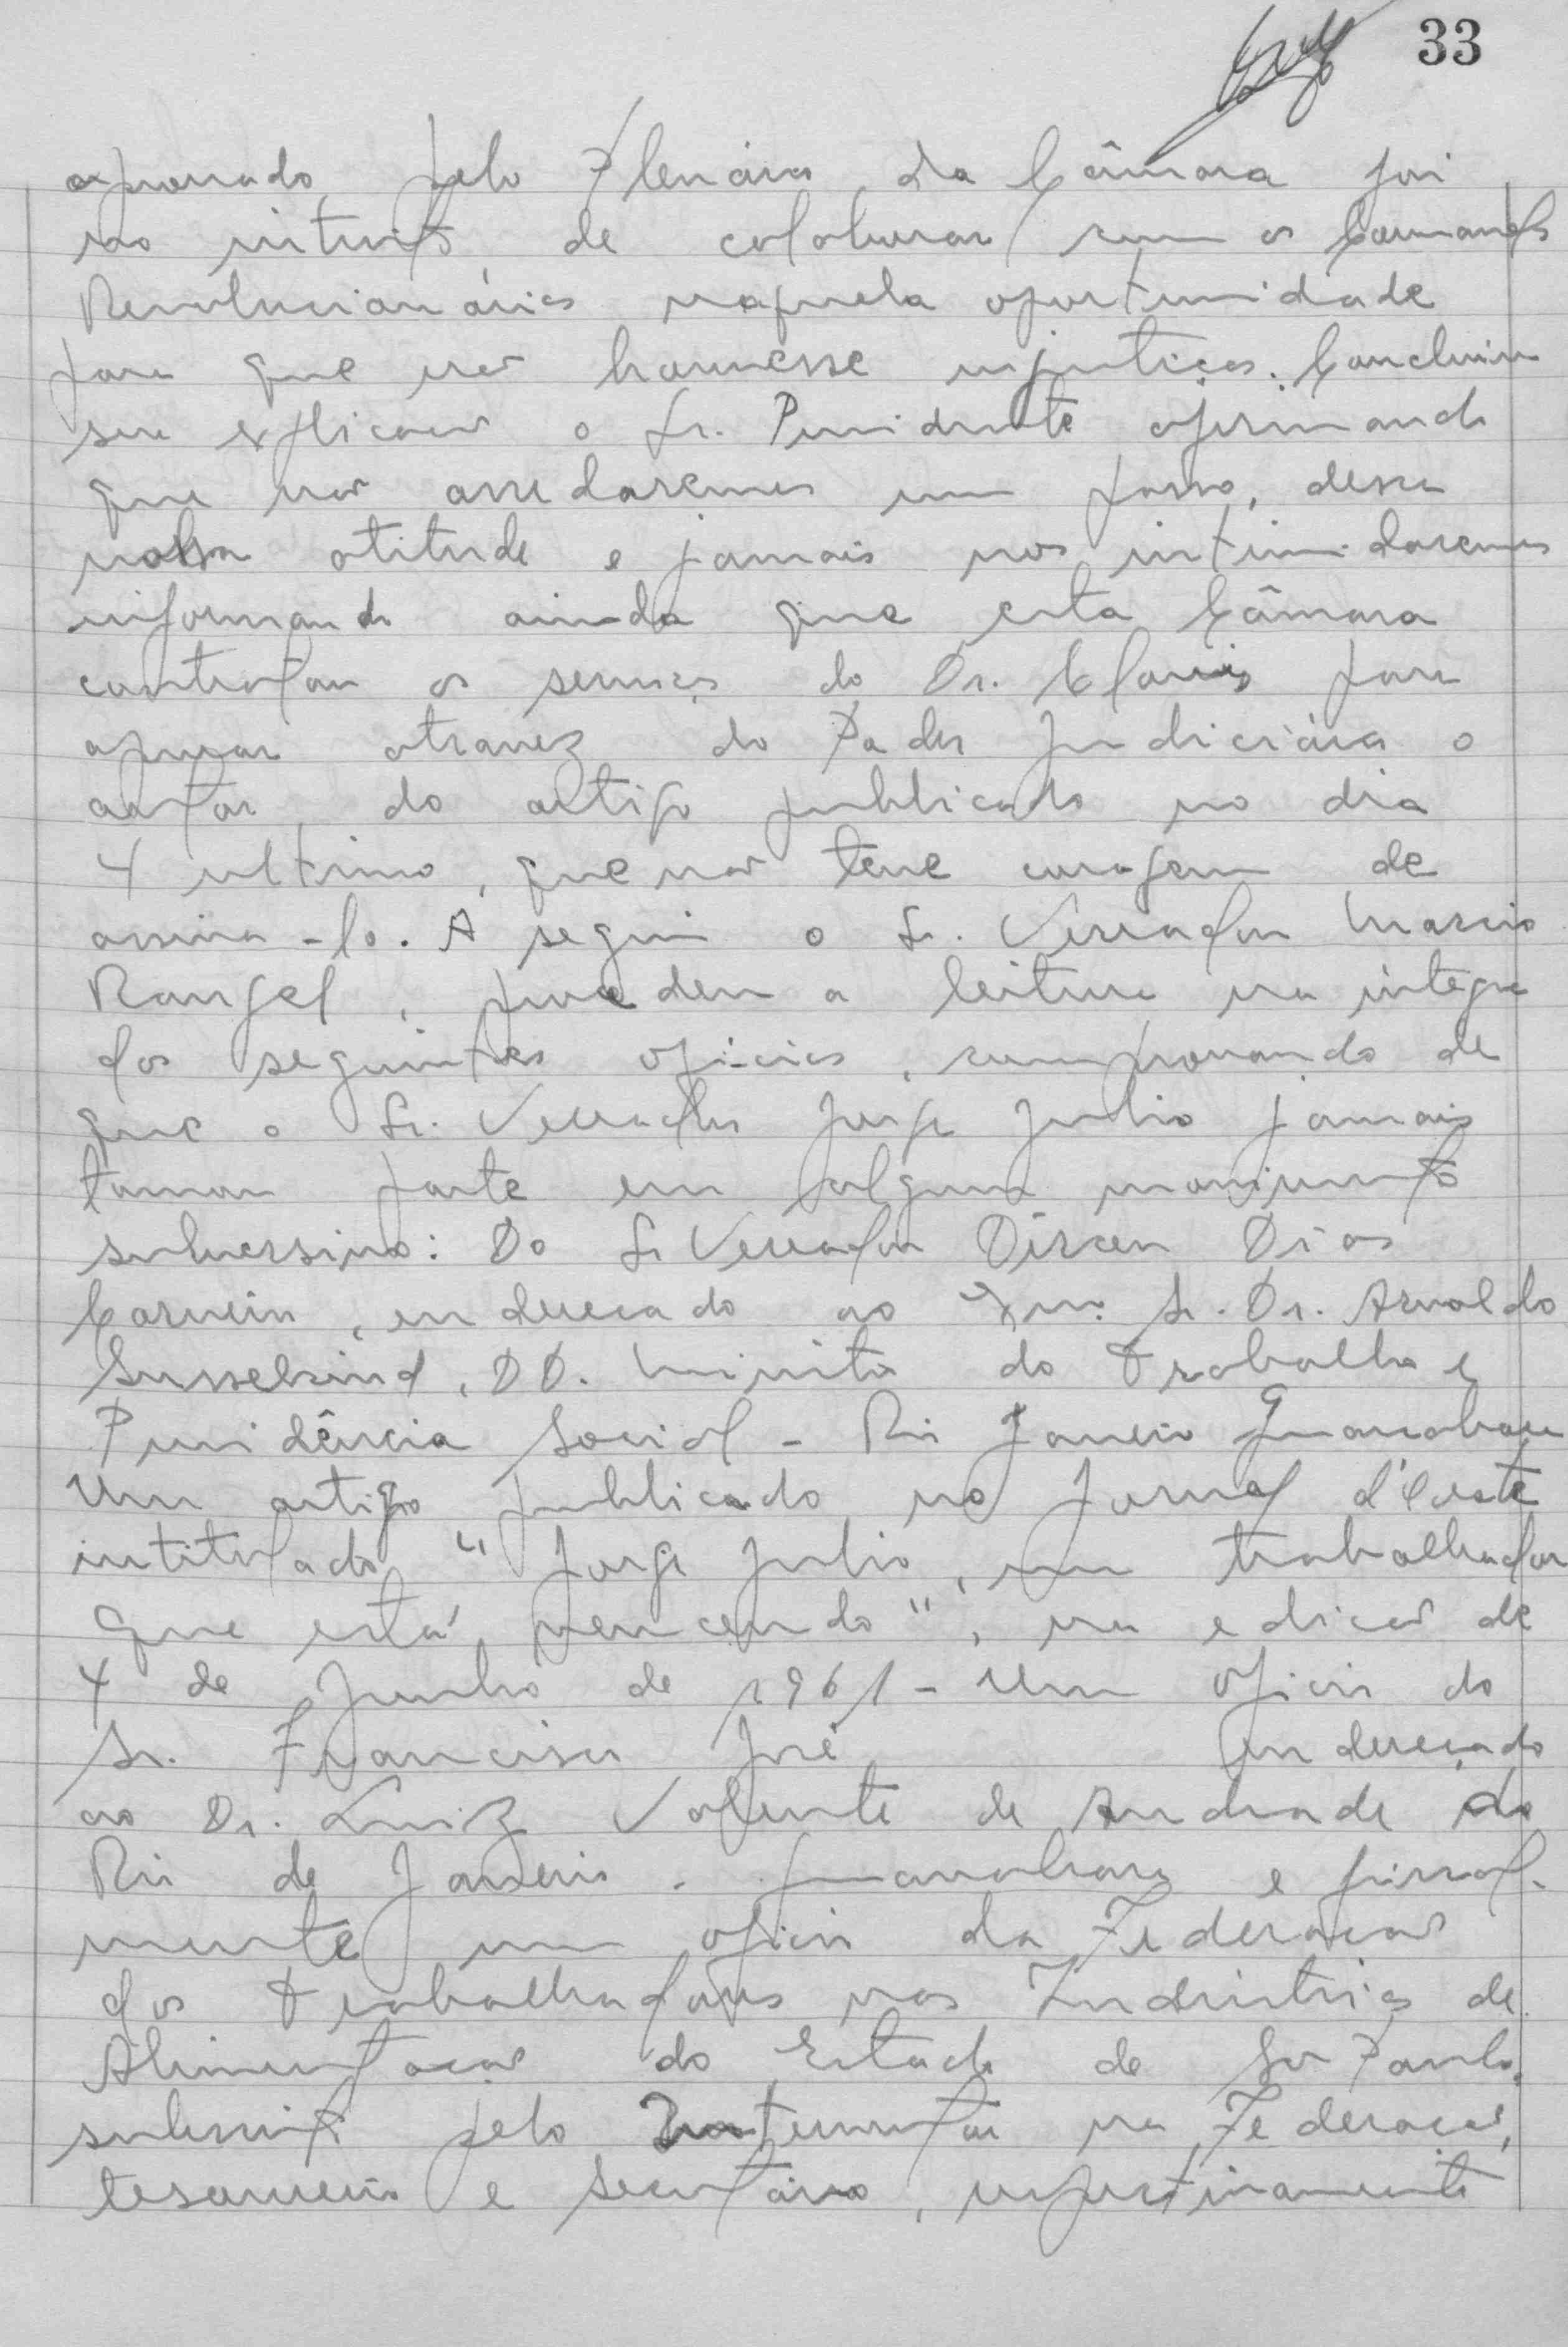 33
aprovado pelo Plenário da Câmara foi
no intuito de colaborar com os Comandos
Revolucionários naquela oportunidade
para que não houvesse injustiças. Concluiu
sua explicação o Sr. Presidente afirmando
que não arredaremos um passo, dessa
nossa atitude e jamais nos intimidaremos
informando ainda que esta Câmara
contratou os serviços do Dr. Clovis para
apurar atravez do Poder Judiciário o
autor do artigo publicado no dia
4 ultimo, que não teve coragem de
assina-lo. A seguir o Sr. Vereador Marcio
Rangel, procedeu a leitura na integra
dos seguintes oficios, comprovando de
que o Sr. Vereador Jorge Julio jamais
tomou parte em algum movimento
subversivo: Do Sr Vereador Dirceu Dias
Carneiro, endereçado ao Exmo. Sr. Dr. Arnaldo
Sussekind, DD. Ministro do Trabalho e
Previdência Social - Rio Janeiro Guanabara
Um artigo publicado no Jornal d'Oeste
intitulado "Jorge Julio, um trabalhador
que está vencendo", na edicão de
4 de Junho de 1961 - Um oficio do
Sr. Francisco José endereçado
ao Dr. Luiz Valente de Andrade do
Rio de Janeiro - Guanabara e final-
mente um oficio da Federacão
dos Trabalhadores nas Industrias de
Alimentacão do Estado de São Paulo,
subscrito pelo Interventor na Federacão,
tesoureiro e Secretário, respectivamente